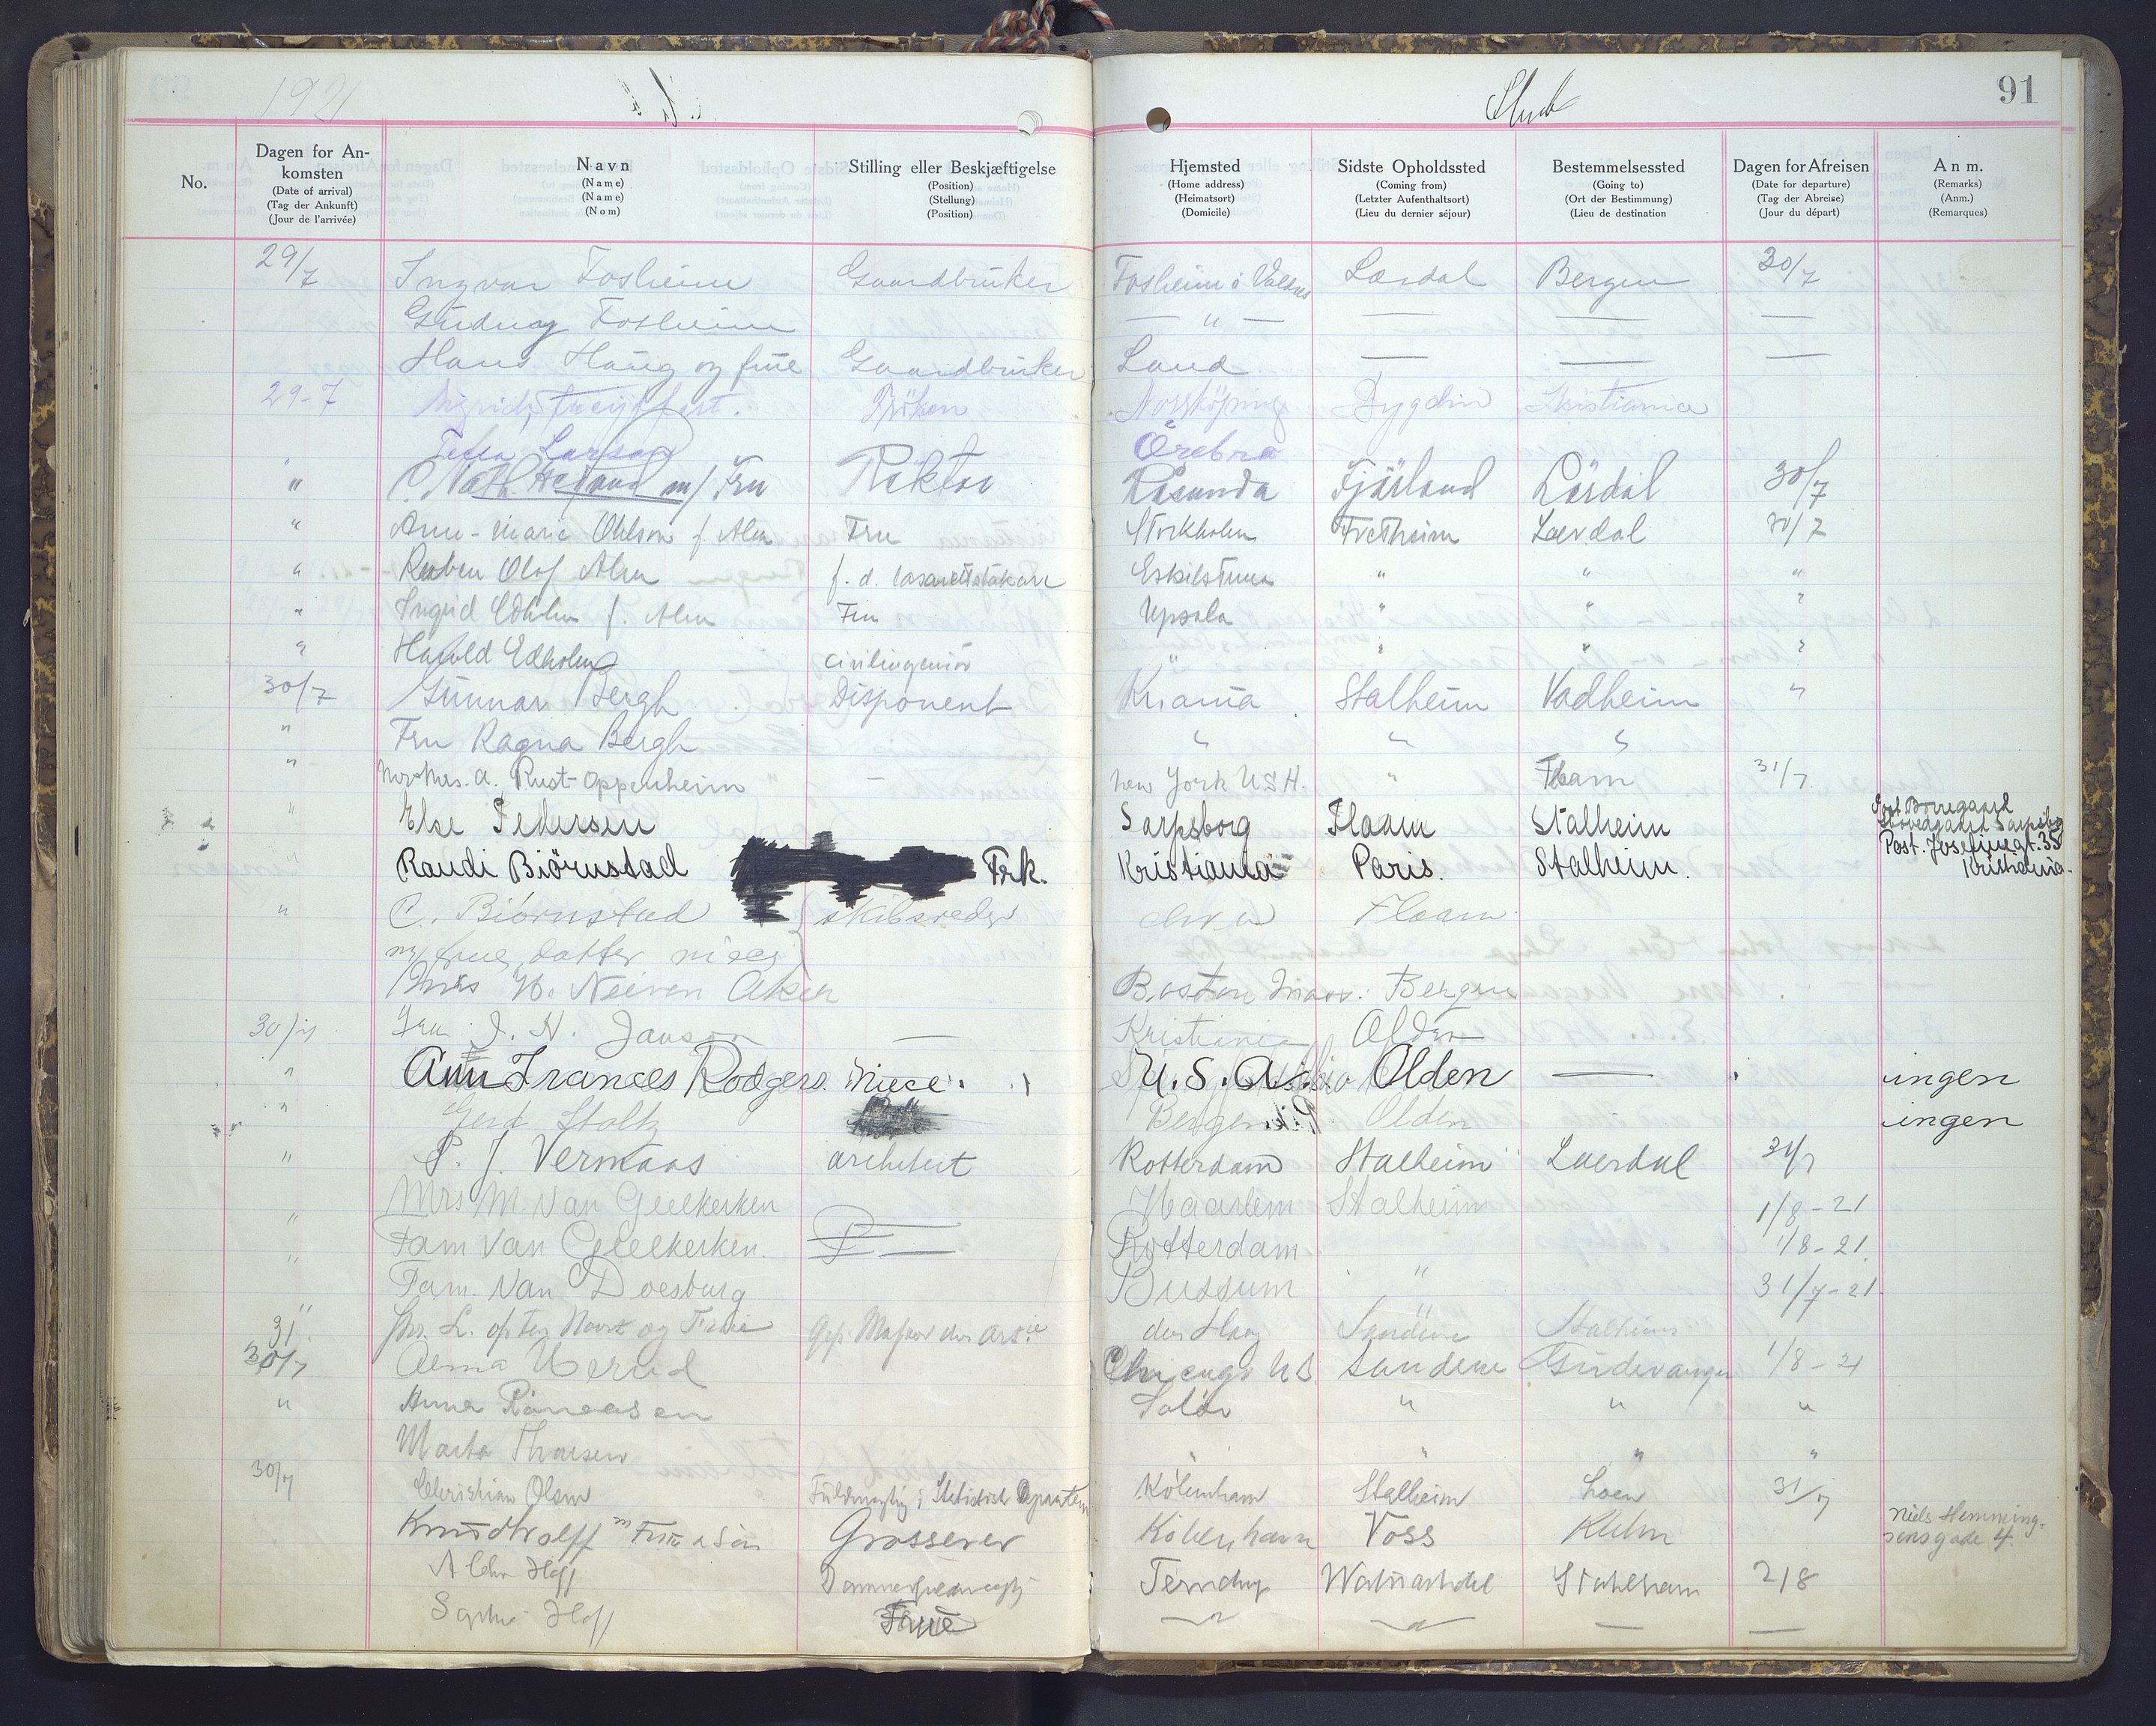 1921
91
No.
Dagen for Ankomsten
(Date of arrival)
(Tag der Ankunft)
(Jour de l'arrivée)
Navn
(Name)
(Name)
(Nom)
Stilling eller Beskjæftigelse
(Position)
(Stellung)
(Position)
Hjemsted
(Home address)
(Heimatsort)
(Domicile)
Sidste Opholdssted
(Coming from)
(Letzter Aufenthaltsort)
(Lieu du dernier séjour)
Bestemmelsessted
(Going to)
(Ort der Bestimmung)
(Lieu de destination
Dagen for Afreisen
(Date for departure)
(Tag der Abreise)
(Jour du départ)
Anm.
(Remarks)
(Anm.)
(Remarques)
29/7 Ingvar Fosheim Gaardbruker Fosheim i Valdres Lærdal Bergen 30/7
Gudny Fosheim — " — — — —
Hans Haug og frue Gaardbruker Land — — —
29-7 Fröken Norrköping Bygdin Kristiania
" Larson Örebro
" C. Nath. m/ Fru Rektor Råsunda Fjärland Lärdal 30/7
" Ann-Marie Ohlson f. Alm Fru Stockholm Fretheim Laerdal 30/7
" Ruben Olof Alm f. d. lasarettsläkare Eskilstuna " " "
" Ingrid Edholm f. Alm Fru Upsala " " "
" Harald Edholm civilingeniör " " " "
30/7 Gunnar Bergh Disponent Kr.ania Stalheim Vadheim "
" Fru Ragna Bergh " " "
" Mr & Mrs. A. Rust-Oppenheim — New York U.S.A. " Flaam 31/7
" Else Pedersen Sarpsborg Flaam Stalheim Borregaard Sarpsborg
Raudi Biörnstad Frk. Kristiania Paris. Stalheim. Post. Josefinegt. 35 Kristiania.
" C. Biörnstad skibsreder Flaam
m/ frue, datter, niece
Miss H. Neeven Aken Boston Mass. Bergen
30/7 Fru J. N. Janson — Kristiania Olden
" Ann Frances Rodgers. Niece. U.S.A. Olden — ingen
" Gerd Stoltz Bergen Olden ingen
" P. J. Vermaas architect Rotterdam Stalheim Laerdal 31/7
Mrs M. Van Geelkerken Haarlem Stalheim 1/8-21
" Fam Van Geelkerken. Rotterdam 1/8-21.
" Fam. Van Doesburg Bussum " 31/7-21.
31. L. op ten Noort og Frue den Haag Sandene Stalheim
30/7 Alma Ulerud Chicago U S Sandene Gudvangen 1/8-21
" Anna Röneasen Solör " " "
Marta Thorsen " " " "
30/7 Christian Olsen Fuldmægtig i Statistisk Departem Köbenhavn Stalheim Loen 31/7
Knud Wolff m Frue & Sön Grosserer Köbenhavn Voss Niels Hemmingsensgade 4.
Hoff 2/8
Hoff Frue — " — — " — — —